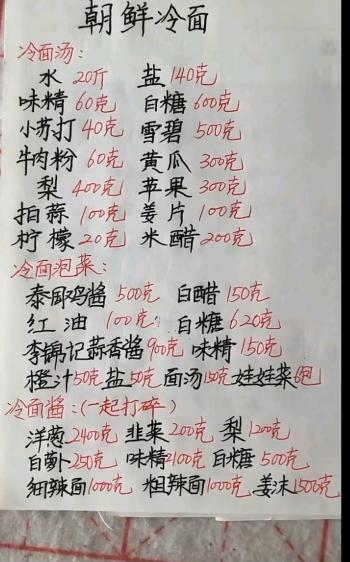 朝鲜冷面
冷面汤:
水 20斤 盐 140克
味精 60克 白糖 600克
小苏打 40克 雪碧 500克
牛肉粉 60克 黄瓜 300克
梨 400克 苹果 300克
拍蒜 100克 姜片 100克
柠檬 20克 米醋 200克
冷面泡菜:
泰国鸡酱 500克 白醋 150克
红油 100克 白糖 620克
李锦记蒜香酱 900克 味精 150克
橙汁 50克 盐 50克 面汤 150克 娃娃菜 6包
冷面酱:(一起打碎)
洋葱 2400克 韭菜 200克 梨 1200克
白萝卜 250克 味精 2100克 白糖 500克
细辣面 1000克 粗辣面 1000克 姜沫 1500克